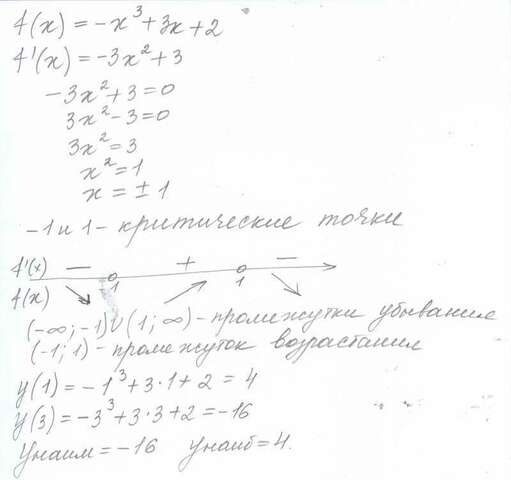 f(x) = -x³+3x+2
f'(x) = -3x²+3
-3x²+3=0
3x²-3=0
3x²=3
x²=1
x = ±1
-1 и 1 - критические точки
f'(x) — + —
-1 1
f(x) ↘ ↗ ↘
(-∞; -1)∪(1; ∞) - промежутки убывания
(-1; 1) - промежуток возрастания
y(1) = -1³+3·1+2 = 4
y(3) = -3³+3·3+2 = -16
Yнаим = -16 Yнаиб = 4.